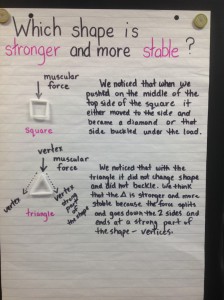 Which shape is
stronger and more stable?
muscular
force
square
We noticed that when we
pushed on the middle of the
top side of the square it
either moved to the side and
became a diamond or that
side buckled under the load.
vertex
muscular
force
vertex
vertex
strong
part of
the shape
triangle
We noticed that with the
triangle it did not change shape
and did not buckle. We think
that the △ is stronger and more
stable because the force splits
and goes down the 2 sides and
ends at a strong part of
the shape - vertices.